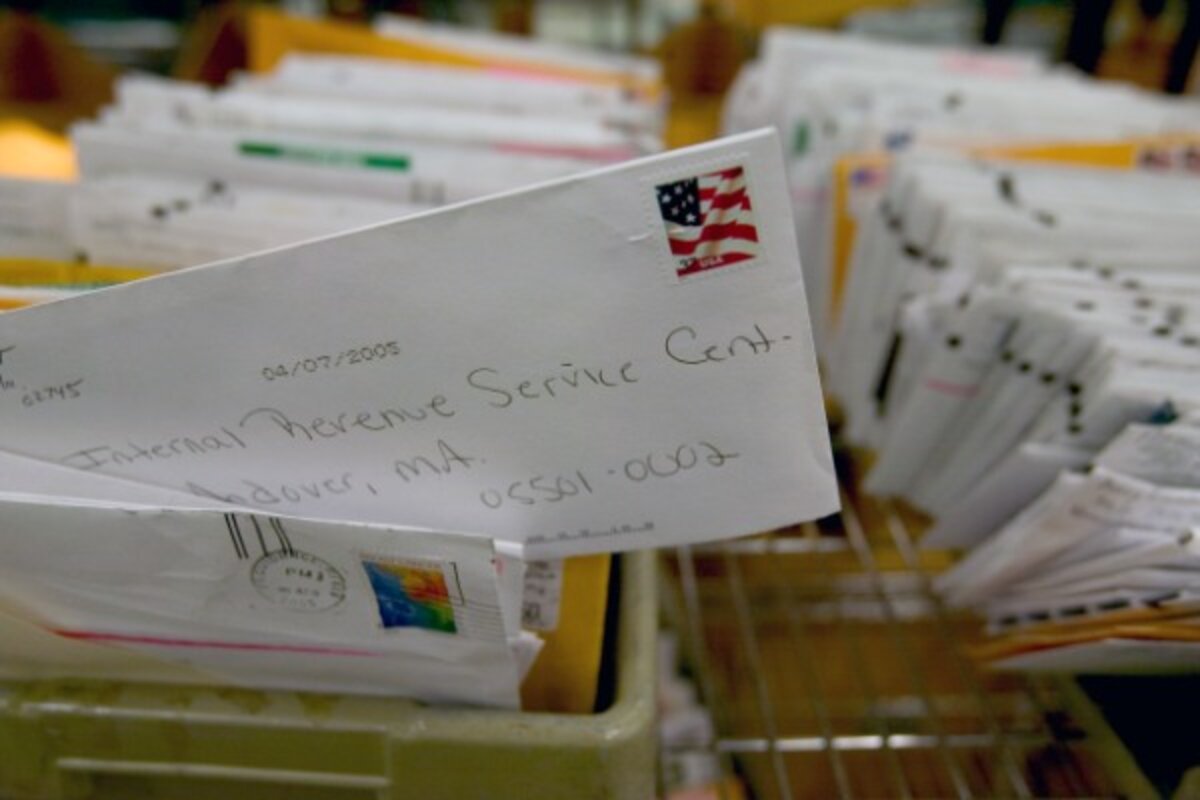 02745
04/07/2005
Internal Revenue Service Cent-
Andover, MA.
05501-0002
USA
PM
2005